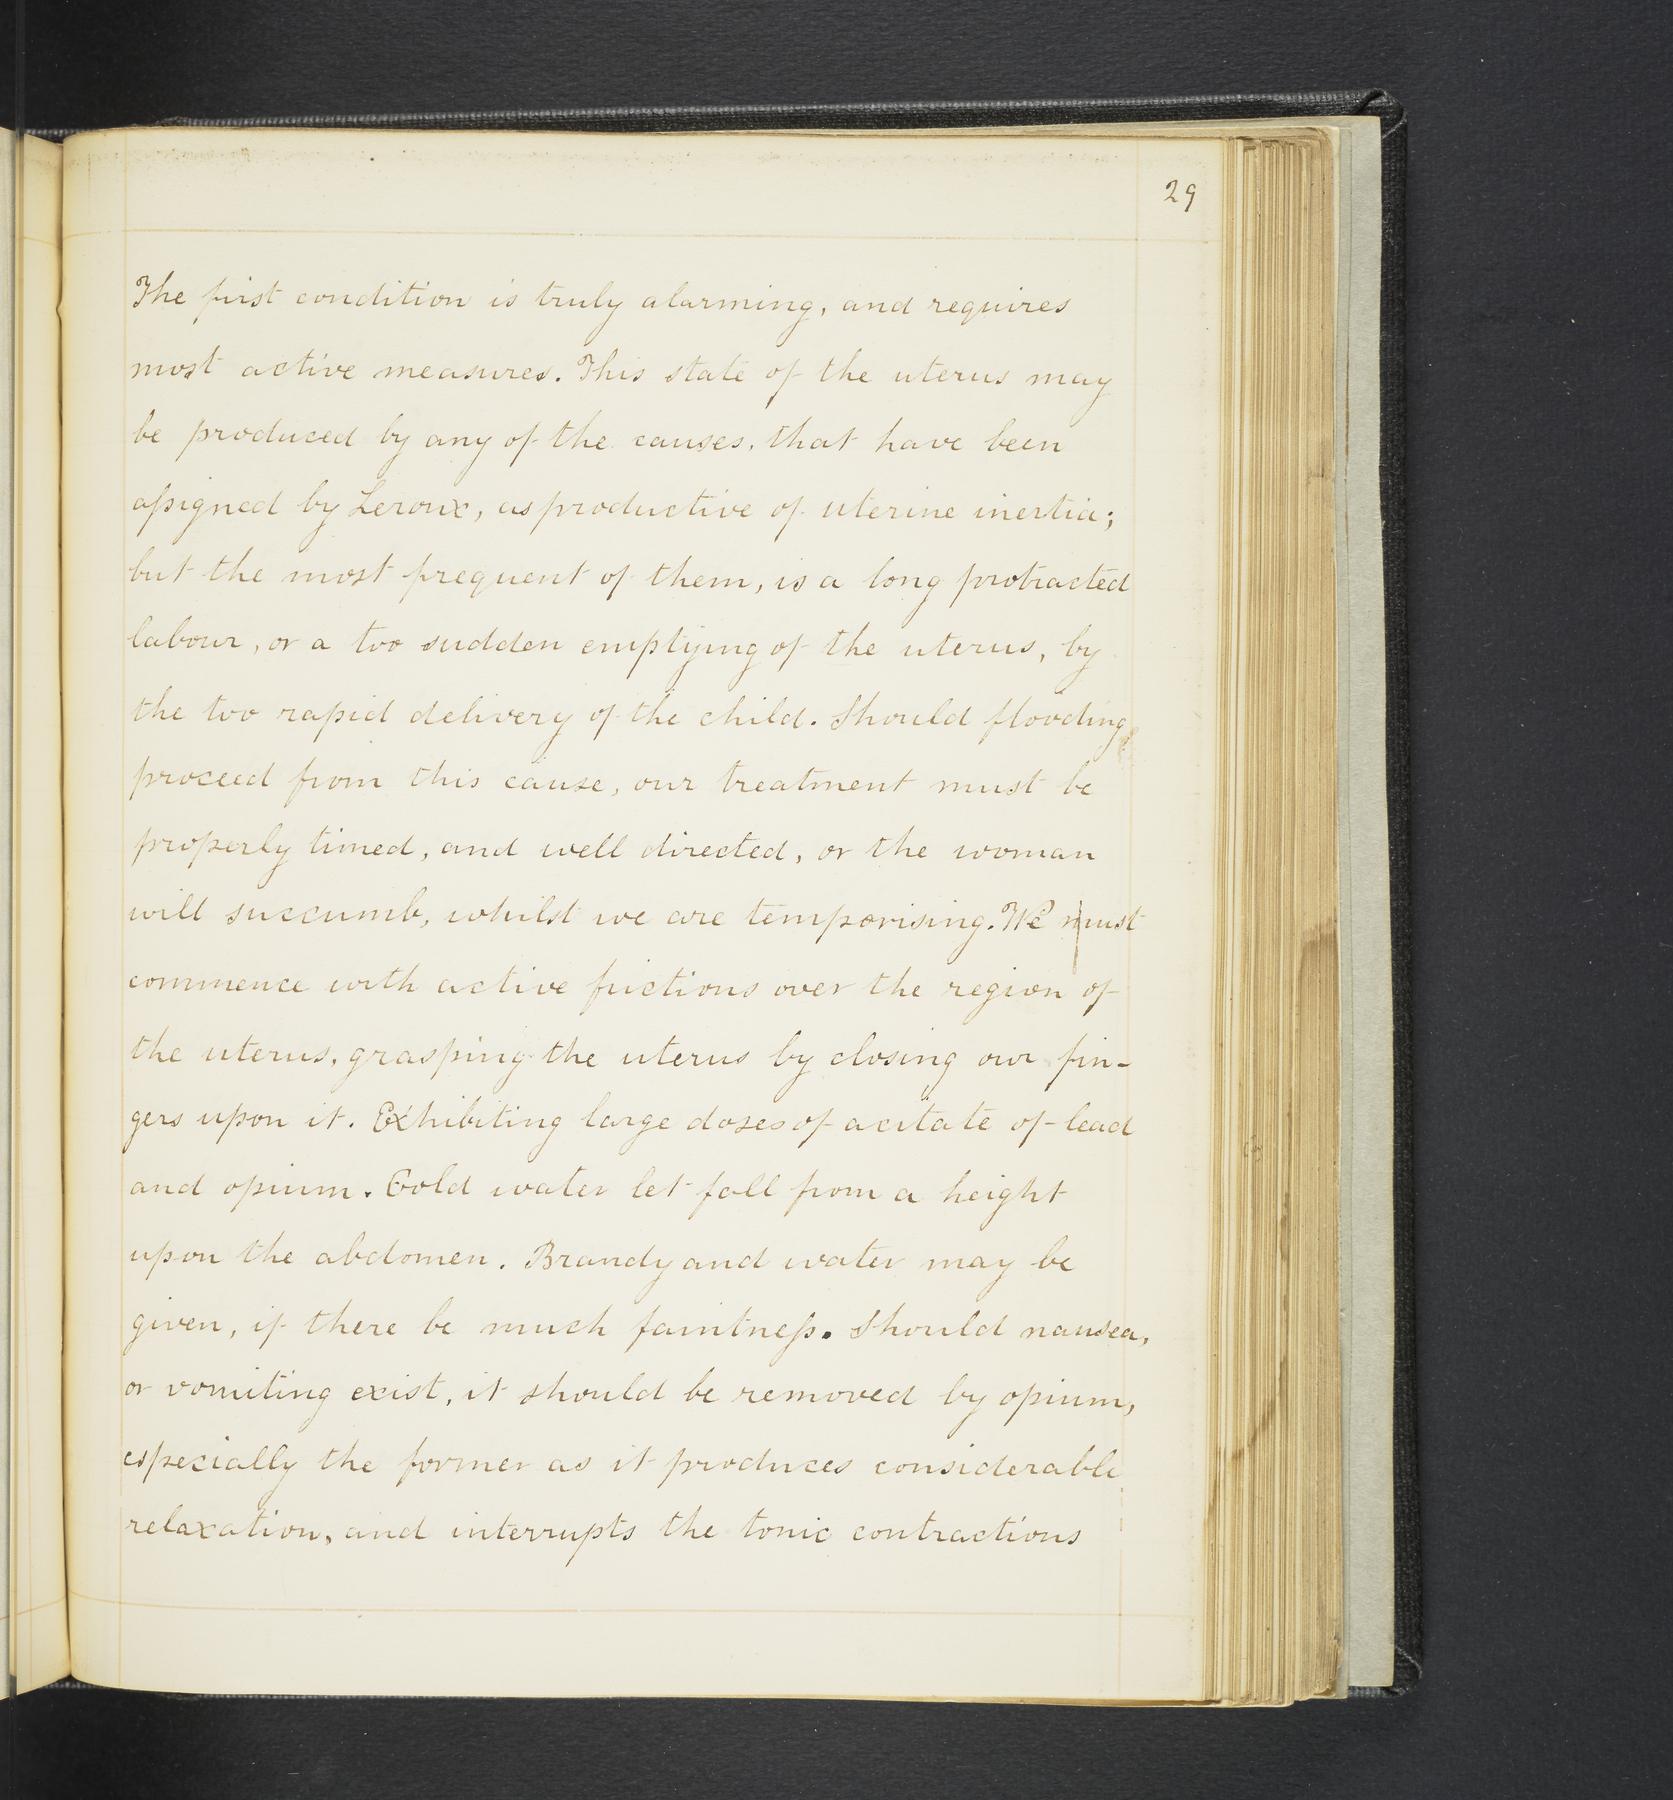 29
The first condition is truly alarming, and requires
most active measures. This state of the uterus may
be produced by any of the causes, that have been
aſsigned by Leroux, as productive of uterine inertia;
but the most frequent of them, is a long protracted
labour, or a too sudden emptying of the uterus, by
the too rapid delivery of the child. Should flooding
proceed from this cause, our treatment must be
properly timed, and well directed, or the woman
will succumb, whilst we are temporising. We must
commence with active frictions over the region of
the uterus, grasping the uterus by closing our fin-
gers upon it. Exhibiting large doses of acitate of lead
and opium. Cold water let fall from a height
upon the abdomen. Brandy and water may be
given, if there be much faintneſs. Should nausea,
or vomiting exist, it should be removed by opium,
especially the former as it produces considerable
relaxation, and interrupts the tonic contractions